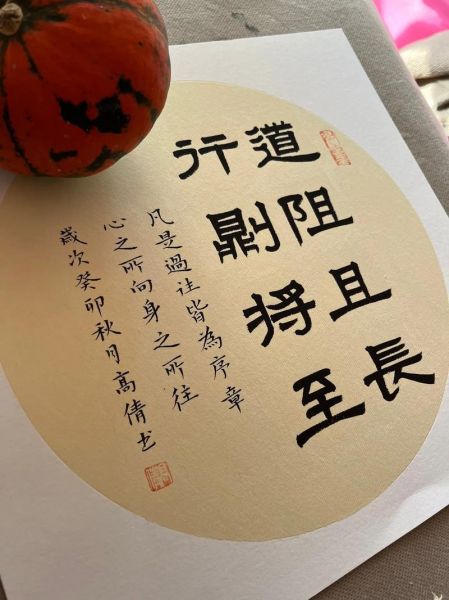 道阻且長
行則將至
凡是過往皆為序章
心之所向身之所往
歲次癸卯秋月高倩书